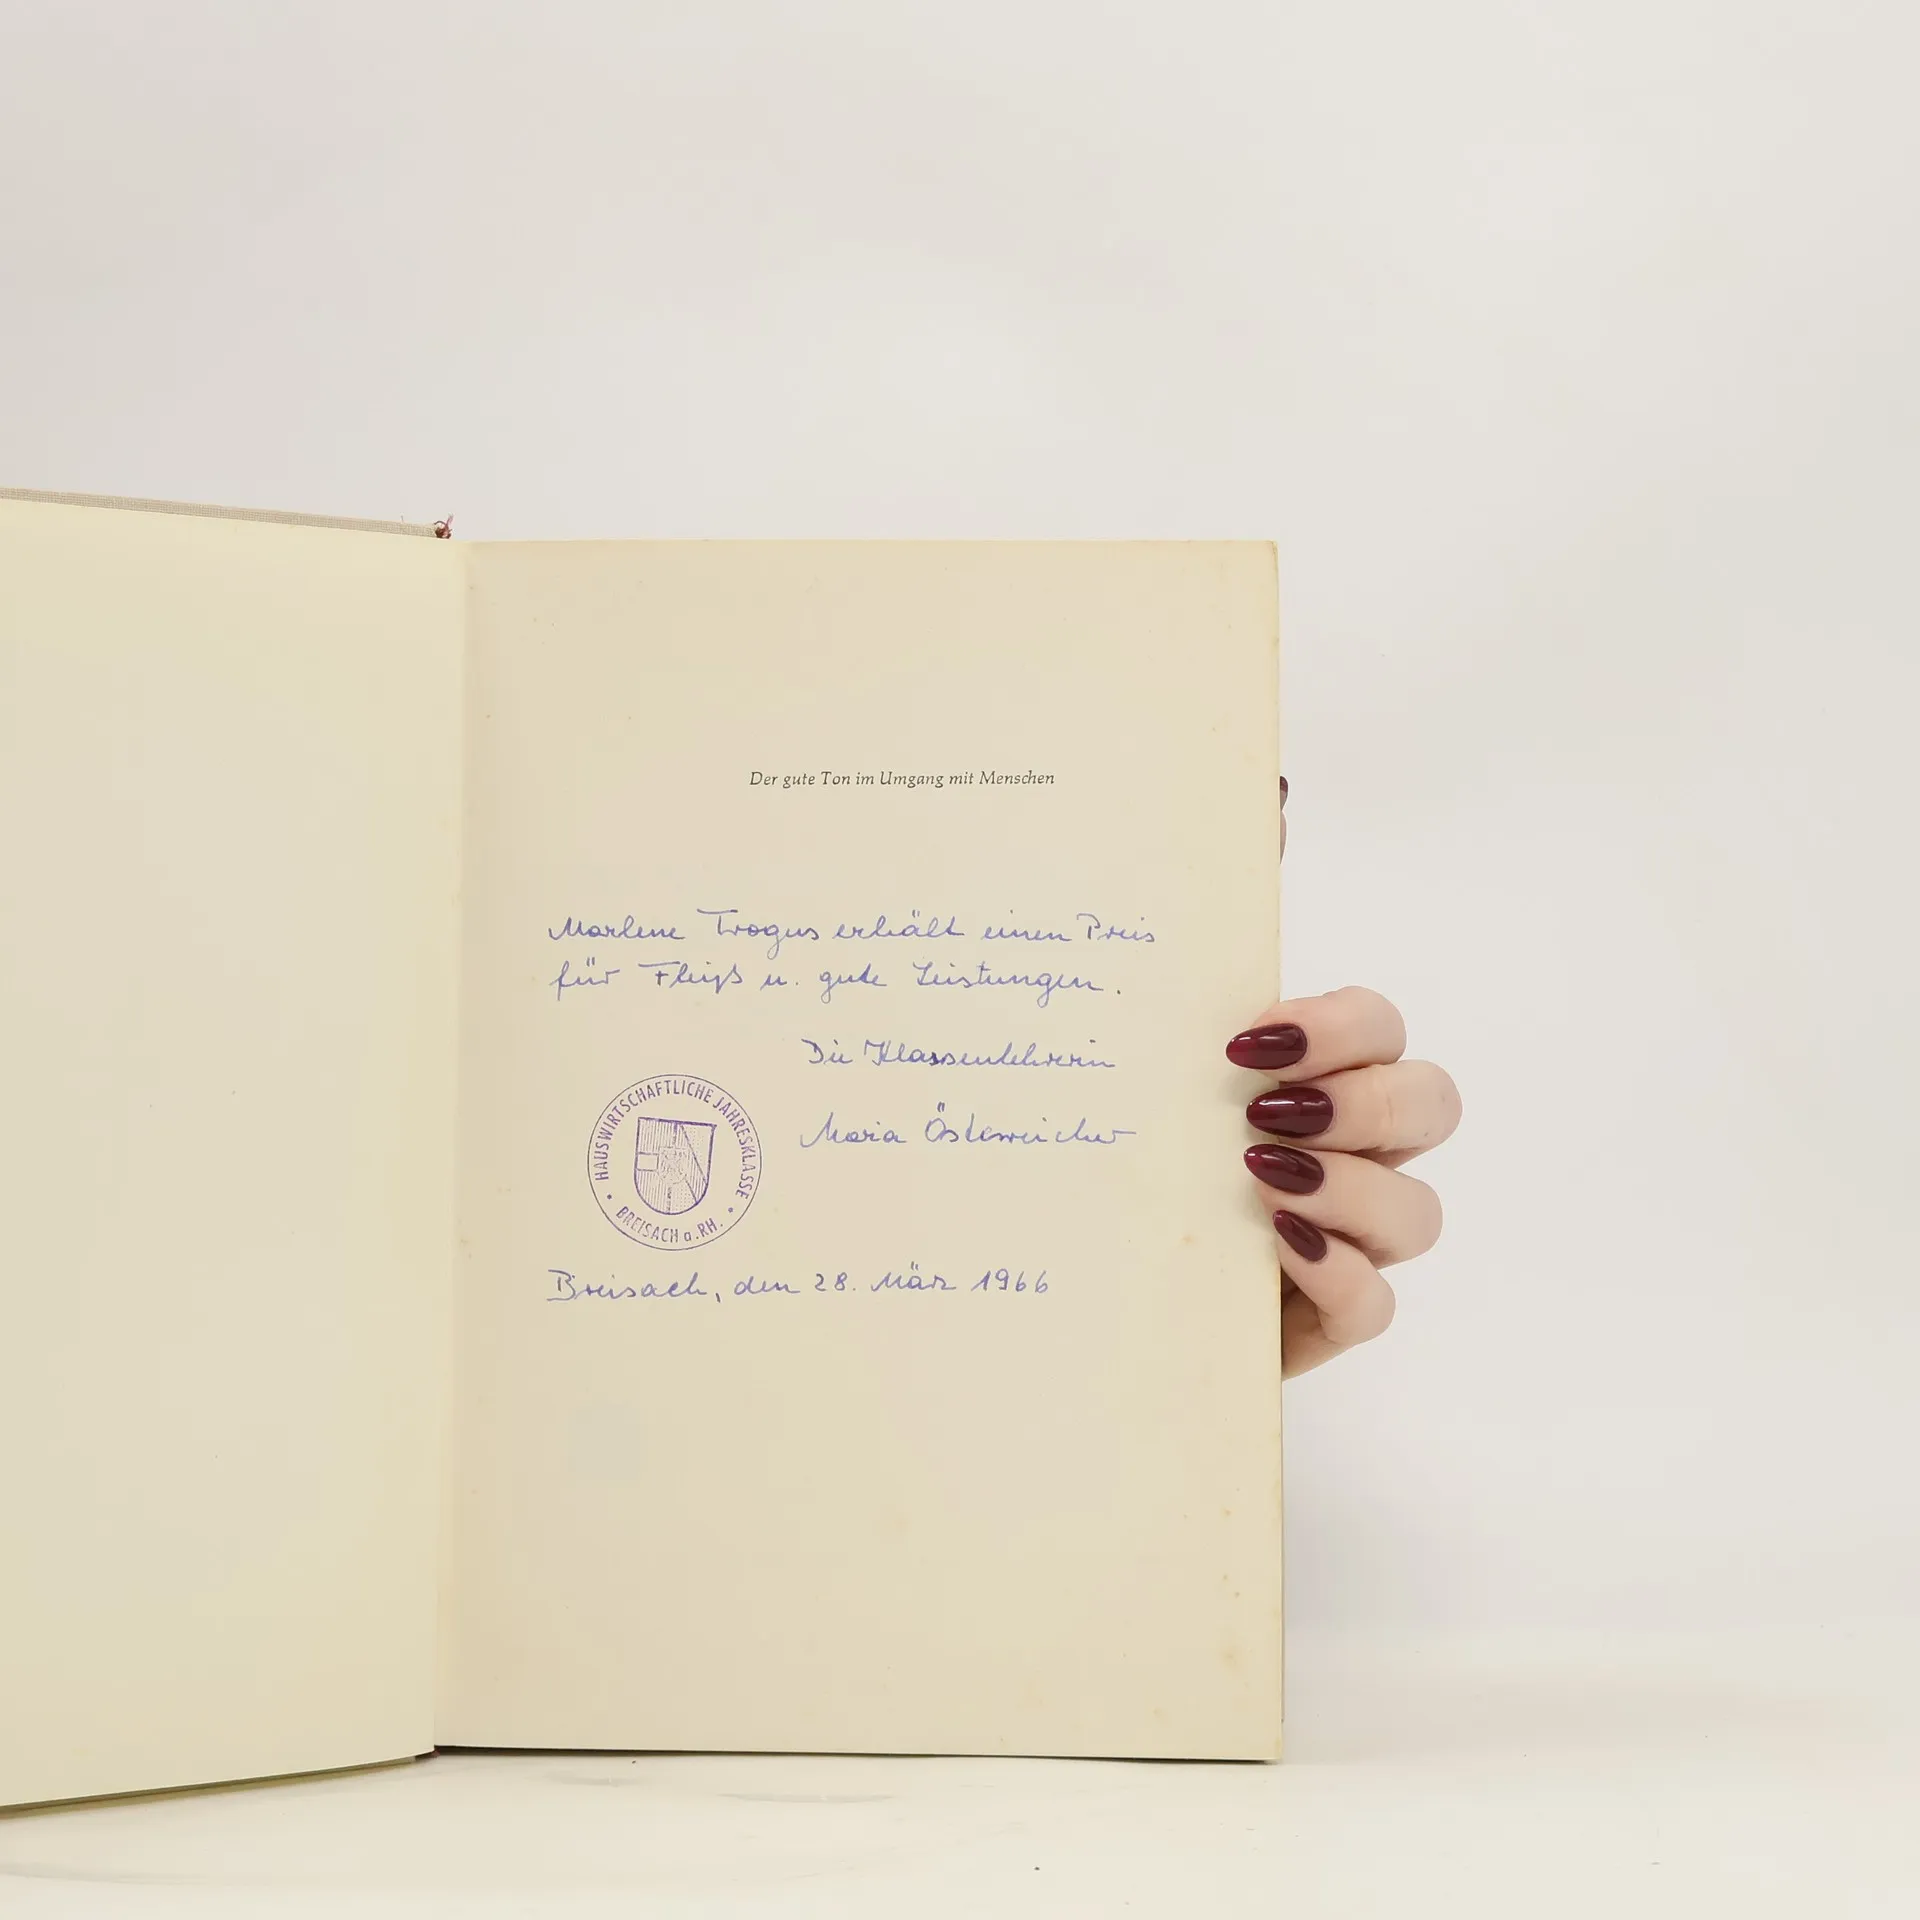 Der gute Ton im Umgang mit Menschen
Marlene Trogus erhält einen Preis
für Fleiß u. gute Leistungen.
Die Klassenlehrerin
Maria Österreicher
HAUSWIRTSCHAFTLICHE JAHRESKLASSE
BREISACH a. RH.
Breisach, den 28. März 1966